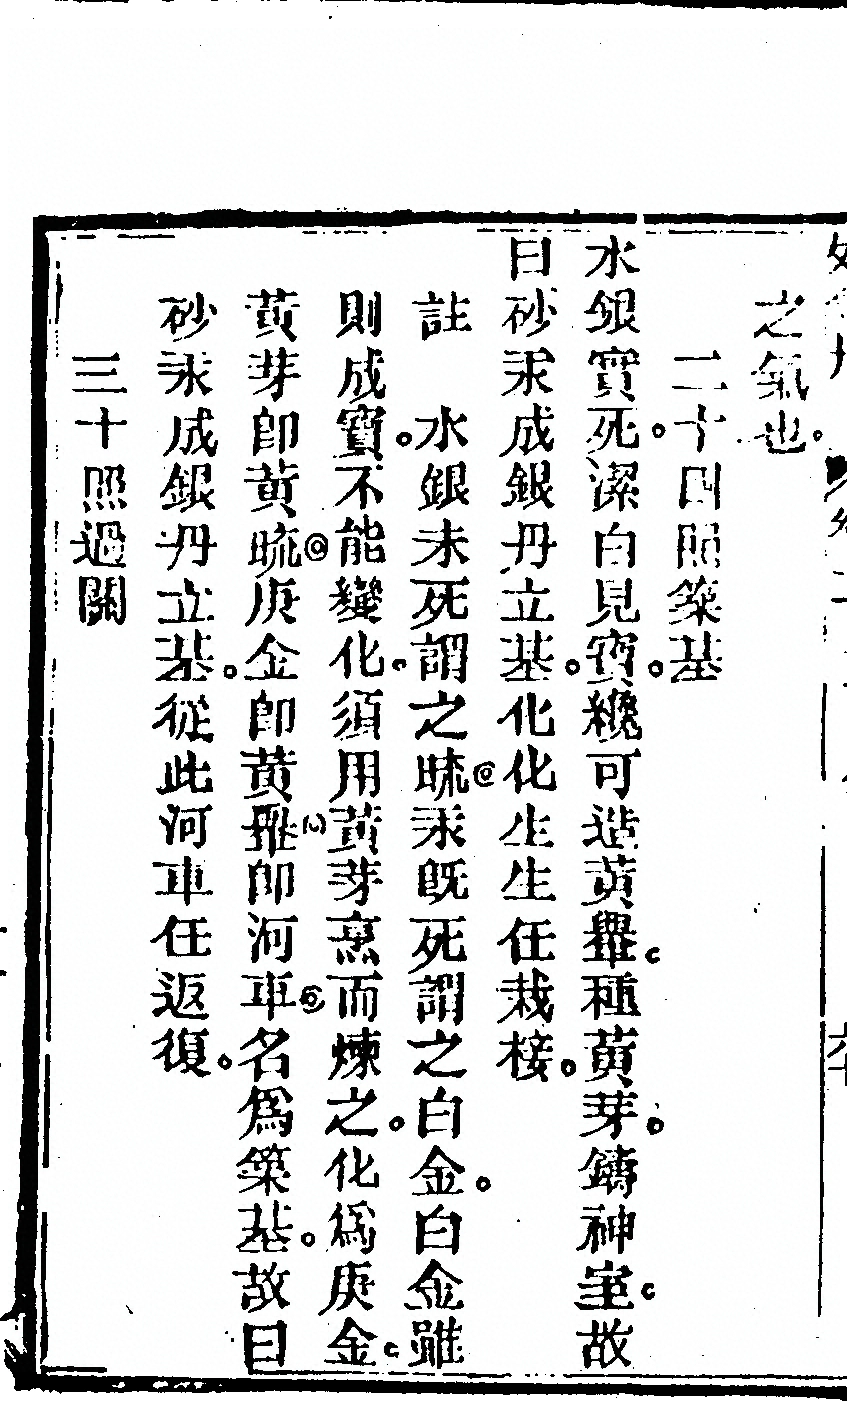 之氣也。
二十四照築基
水銀實死。潔白見寶。纔可造黃轝。種黃芽。鑄神室。故
曰砂汞成銀丹立基。化化生生任栽接。
註　水銀未死謂之硫◎汞既死謂之白金。白金雖
則成寶。不能變化。須用黃芽熏而煉之。化爲庚金。
黃芽即黃硫◎庚金即黃轝◎即河車◎名爲築基。故曰
砂汞成銀丹立基。從此河車任返復。
三十照過關